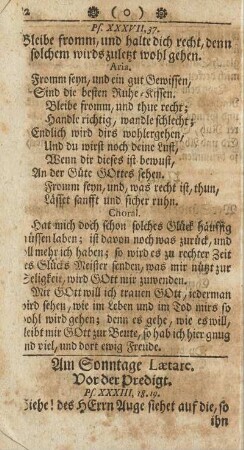 2 ❀ ( o ) ❀
Pſ. XXXVII, 37.
Bleibe fromm, und halte dich recht, denn
ſolchem wirds zuletzt wohl gehen.
Aria.
Fromm ſeyn, und ein gut Gewiſſen,
Sind die beſten Ruhe-Kiſſen.
Bleibe fromm, und thue recht;
Handle richtig, wandle ſchlecht;
Endlich wird dirs wohlergehen,
Und du wirſt noch deine Luſt,
Wenn dir dieſes iſt bewuſt,
An der Güte GOttes ſehen.
Fromm ſeyn, und, was recht iſt, thun,
Läſſet ſanfft und ſicher ruhn.
Choral.
Hat mich doch ſchon ſolches Glück häuffig
müſſen laben; iſt davon noch was zurück, und
ſoll mehr ich haben; ſo wird es zu rechter Zeit
des Glücks Meiſter ſenden, was mir nützt zur
Seligkeit, wird GOtt mir zuwenden.
Mit GOtt will ich trauen GOtt, iederman
wird ſehen, wie im Leben und im Tod mirs ſo
wohl wird gehen; denn es gehe, wie es will,
bleibt mir GOtt zur Beute, ſo hab ich hier gnug
und viel, und dort ewig Freude.
Am Sonntage Lætare.
Vor der Predigt.
Pſ. XXXIII, 18. 19.
Siehe! des HErrn Auge ſiehet auf die, ſo
ihn